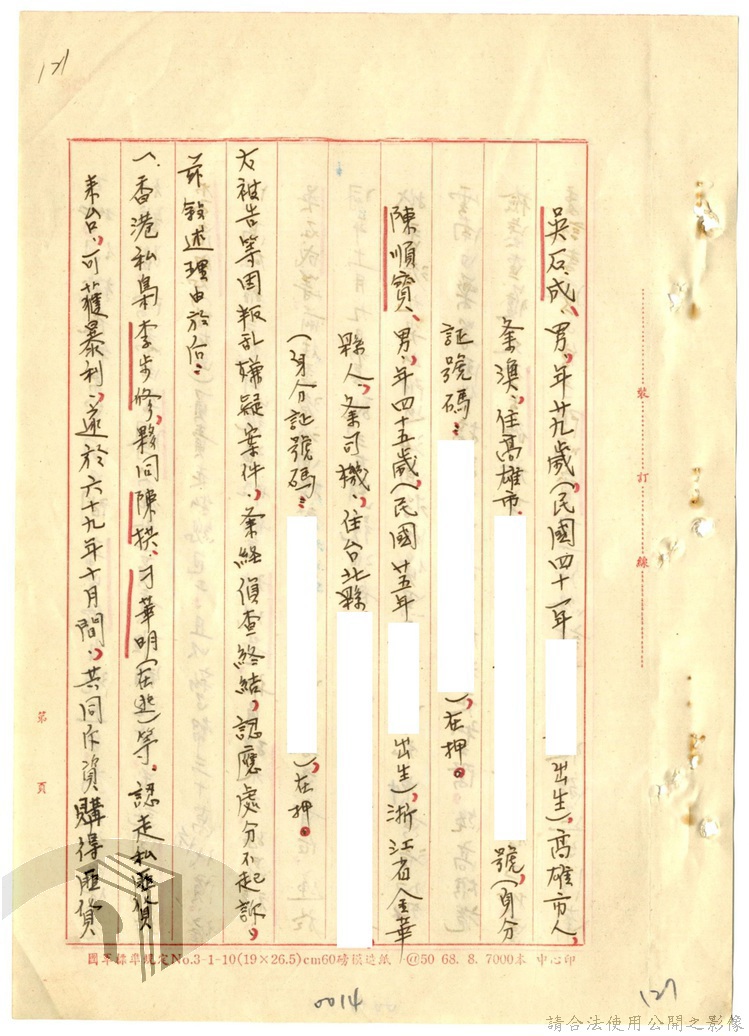 121
吳石成、男、年廿九歲（民國四十一年 出生）、高雄市人，
業漁，住高雄市 號，（身分
証號碼： ）、在押。
陳順寶、男、年四十五歲（民國廿五年 出生）、浙江省金華
縣人、業司機、住台北縣
（身分証號碼： ）、在押。
右被告等因叛乱嫌疑案件，業經偵查終結，認應處分不起訴，
茲敘述理由於后：
一、香港私梟李步修，夥同陳拱、刁華明（在逃）等，認走私匪貨
來台，可獲暴利，遂於六十九年十月間，共同斥資購得匪貨
裝訂線
第 頁
國軍標準規定No.3-1-10(19×26.5)cm60磅模造紙 @50 68. 8. 7000本 中心印
0014
127
請合法使用公開之影像